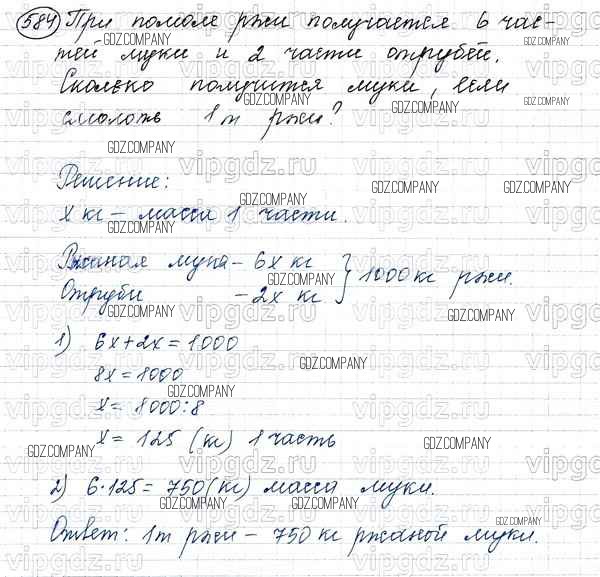 584 При помоле ржи получается 6 час-
тей муки и 2 части отрубей.
Сколько получится муки, если
смолоть 1т ржи?
Решение:
x кг – масса 1 части.
Ржаная мука – 6x кг
Отруби – 2x кг } 1000 кг ржи.
1) 6x+2x=1000
8x=1000
x=1000:8
x= 125 (кг) 1 часть
2) 6·125= 750(кг) масса муки.
Ответ: 1т ржи – 750 кг ржаной муки.
GDZ.COMPANY
vipgdz.ru